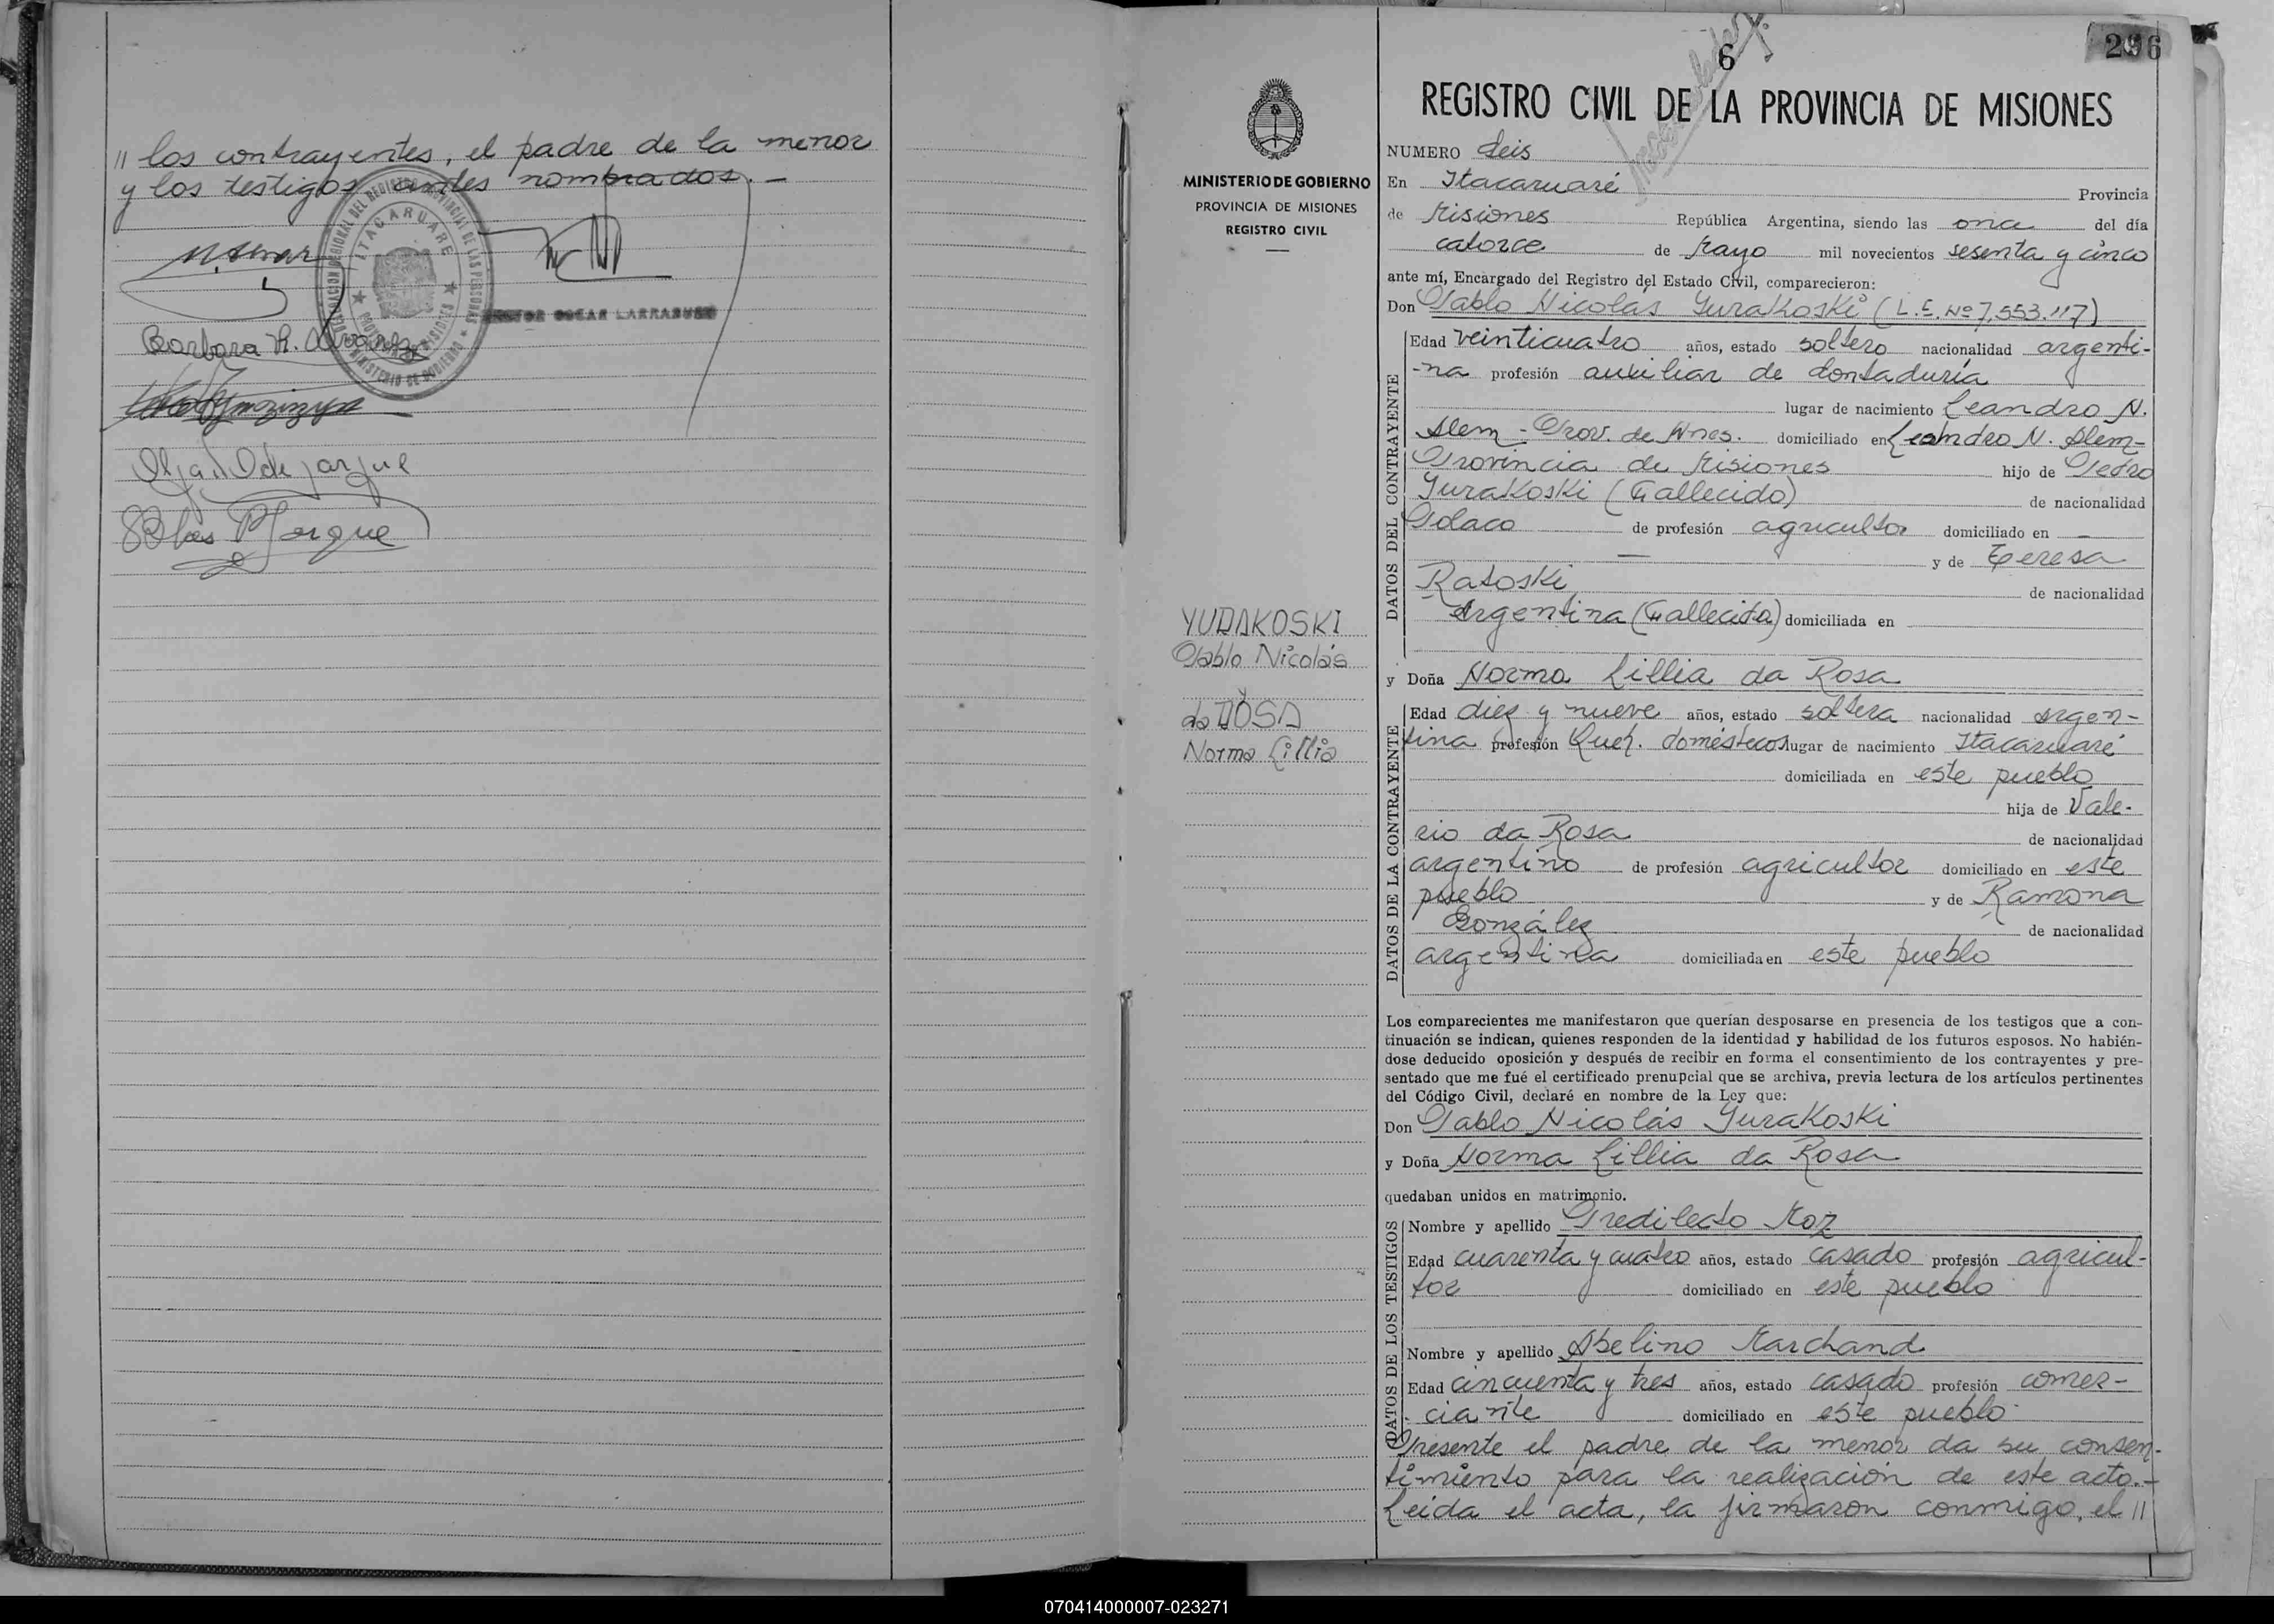 // los contrayentes, el padre de la menor
y los testigos antes nombrados.-
DELEGACION REGIONAL DEL REGISTRO PROVINCIAL DE LAS PERSONAS
ITACARUARE
PROVINCIA DE MISIONES
MINISTERIO DE GOBIERNO
OSCAR LARRABURE
Barbara R.
Olga
Blas P Jorque
MINISTERIO DE GOBIERNO
PROVINCIA DE MISIONES
REGISTRO CIVIL
YURAKOSKI
Pablo Nicolás
y
da ROSA
Norma Lillia
296
6
REGISTRO CIVIL DE LA PROVINCIA DE MISIONES
NUMERO Seis
En Itacaruaré Provincia
de Misiones República Argentina, siendo las once del día
catorce de Mayo mil novecientos sesenta y cinco
ante mí, Encargado del Registro del Estado Civil, comparecieron:
Don Pablo Nicolás Yurakoski (L.E. Nº 7.553.117)
DATOS DEL CONTRAYENTE
Edad veinticuatro años, estado soltero nacionalidad argenti-
-na profesión auxiliar de Contaduría
lugar de nacimiento Leandro N.
Alem - Prov. de Mnes. domiciliado en Leandro N. Alem-
Provincia de Misiones hijo de Pedro
Yurakoski (Fallecido) de nacionalidad
Polaco de profesión agricultor domiciliado en -
— y de Teresa
Ratoski de nacionalidad
Argentina (Fallecida) domiciliada en
y Doña Norma Lillia da Rosa
DATOS DE LA CONTRAYENTE
Edad diez y nueve años, estado soltera nacionalidad argen-
tina profesión Queh. domésticos lugar de nacimiento Itacaruaré
domiciliada en este pueblo
hija de Vale-
rio da Rosa de nacionalidad
argentino de profesión agricultor domiciliado en este
pueblo y de Ramona
González de nacionalidad
argentina domiciliada en este pueblo
Los comparecientes me manifestaron que querían desposarse en presencia de los testigos que a con-
tinuación se indican, quienes responden de la identidad y habilidad de los futuros esposos. No habién-
dose deducido oposición y después de recibir en forma el consentimiento de los contrayentes y pre-
sentado que me fué el certificado prenupcial que se archiva, previa lectura de los artículos pertinentes
del Código Civil, declaré en nombre de la Ley que:
Don Pablo Nicolás Yurakoski
y Doña Norma Lillia da Rosa
quedaban unidos en matrimonio.
DATOS DE LOS TESTIGOS
Nombre y apellido Predilecto Moz
Edad cuarenta y cuatro años, estado casado profesión agricul-
tor domiciliado en este pueblo
Nombre y apellido Abelino Marchand
Edad cincuenta y tres años, estado casado profesión comer-
ciante domiciliado en este pueblo-
Presente el padre de la menor da su consen-
timiento para la realización de este acto.-
Leída el acta, la firmaron conmigo, el //
070414000007-023271